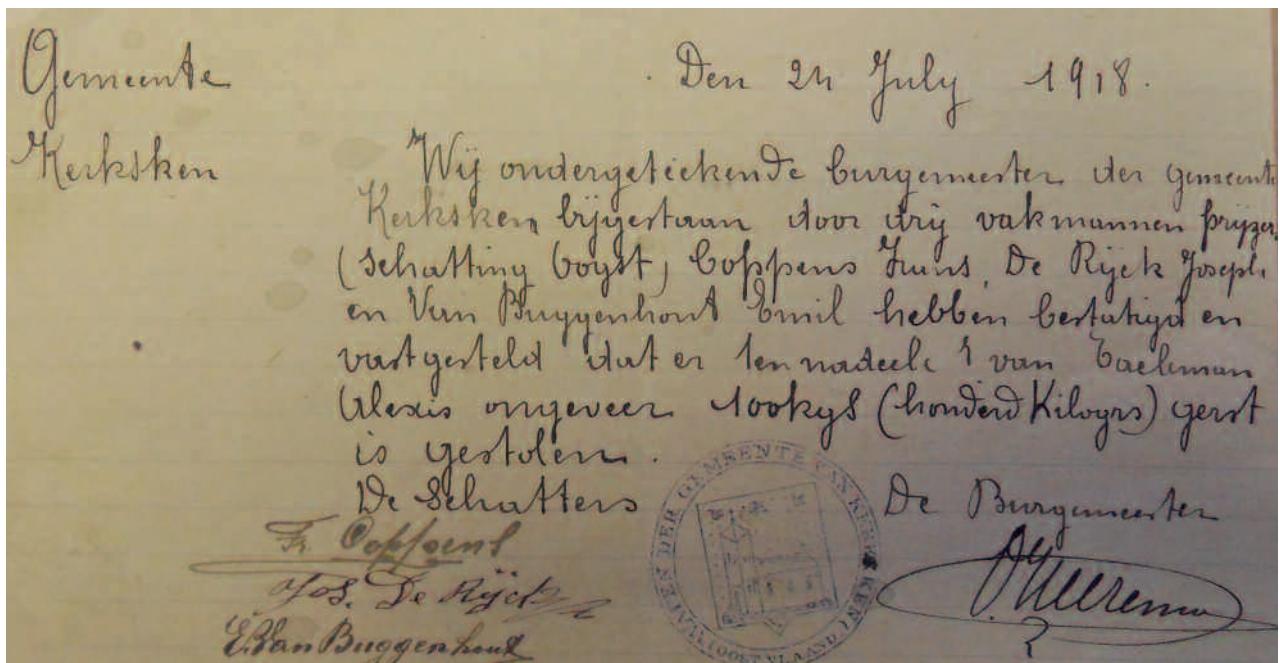 Gemeente
Kerksken
Den 24 July 1918.
Wij ondergeteekende burgemeester der gemeente
Kerksken, bijgestaan door drij vakmannen prijzers
(schatting oogst) Coppens Frans, De Rijck Joseph
en Van Buggenhout Emil hebben bestatigd en
vastgesteld dat er ten nadeele van
Alexis ongeveer 100kgs (honderd Kilogrs) gerst
is gestolen.
De Schatters
De Burgemeester
Fr. Coppens
Jos. De Rijck
E. Van Buggenhout
DER GEMEENTE VAN KERKSKEN (OOST VLAAND.)